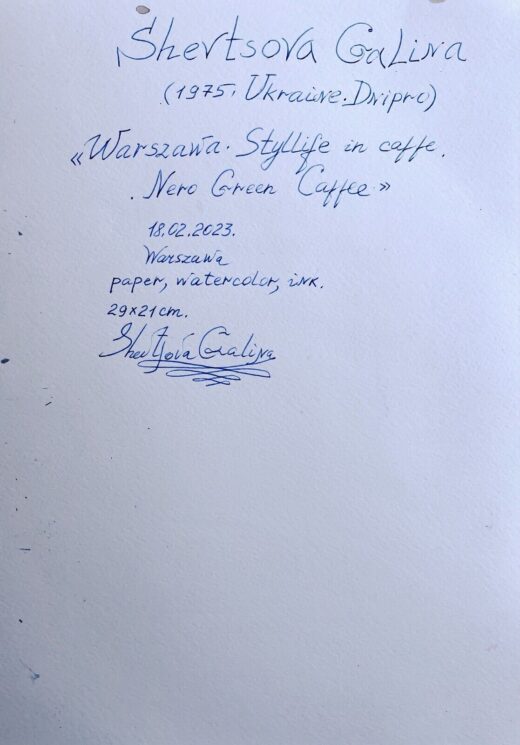 Shevtsova Galina
(1975, Ukraine. Dnipro)
«Warszawa. Styllife in caffe.
. Nero Green Caffee»
18.02.2023.
Warszawa
paper, watercolor, ink.
29x21cm.
Shevtsova Galina